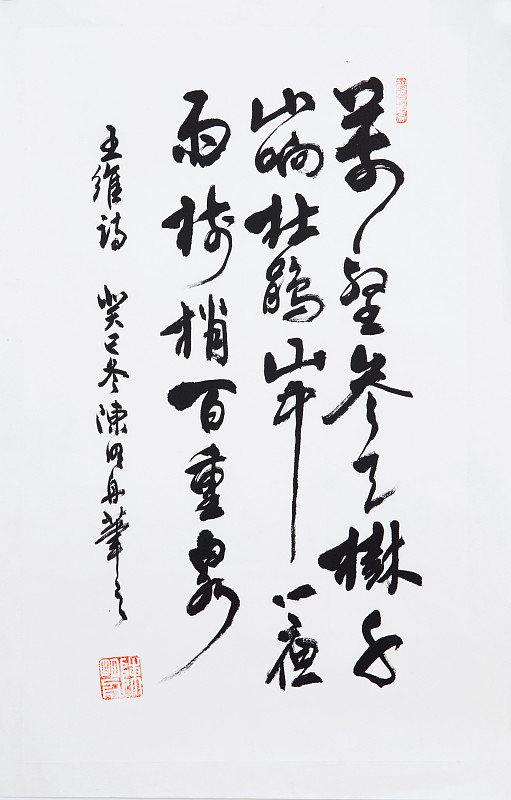 萬壑參天樹千
山响杜鵑山中一夜
雨树梢百重泉
王維詩 癸巳冬陳明